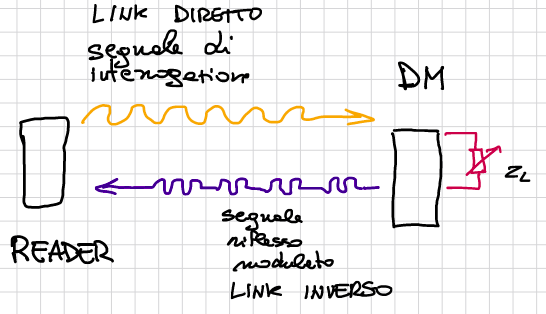 LINK DIRETTO
segnale di
interrogation
DM
ZL
READER
segnale
riflesso
modulato
LINK INVERSO